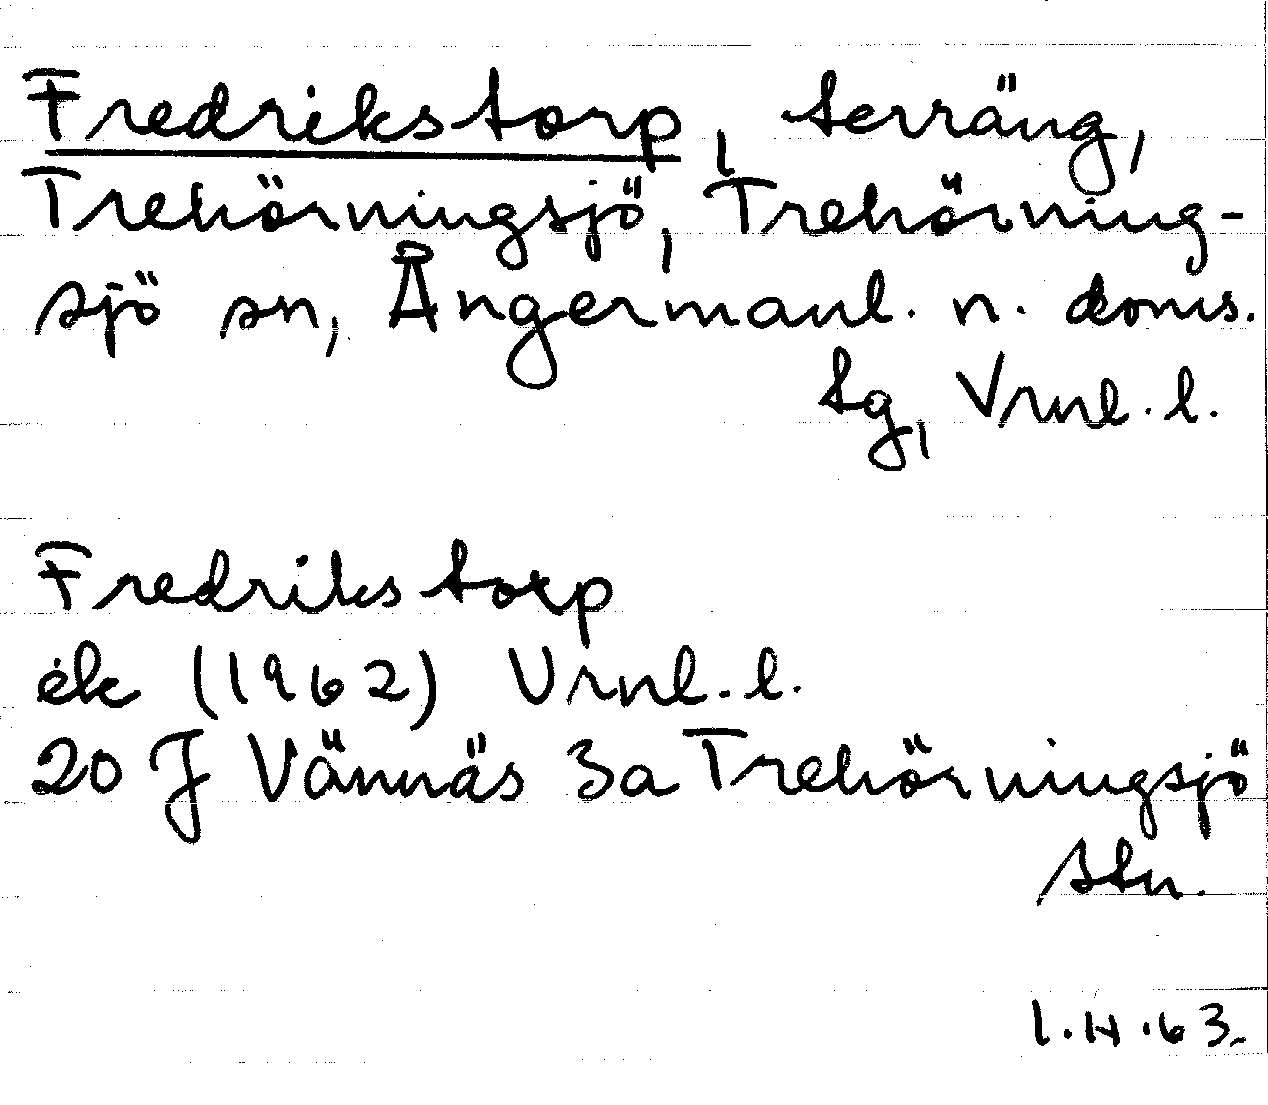 Fredrikstorp, terräng,
Trehörningsjö, Trehörning-
sjö sn, Ångermanl. n. doms.
tg, Vrnl. l.
Fredrikstorp
ek (1962) Vrnl. l.
20 J Vännäs 3a Trehörningsjö
stn.
1.4.63.